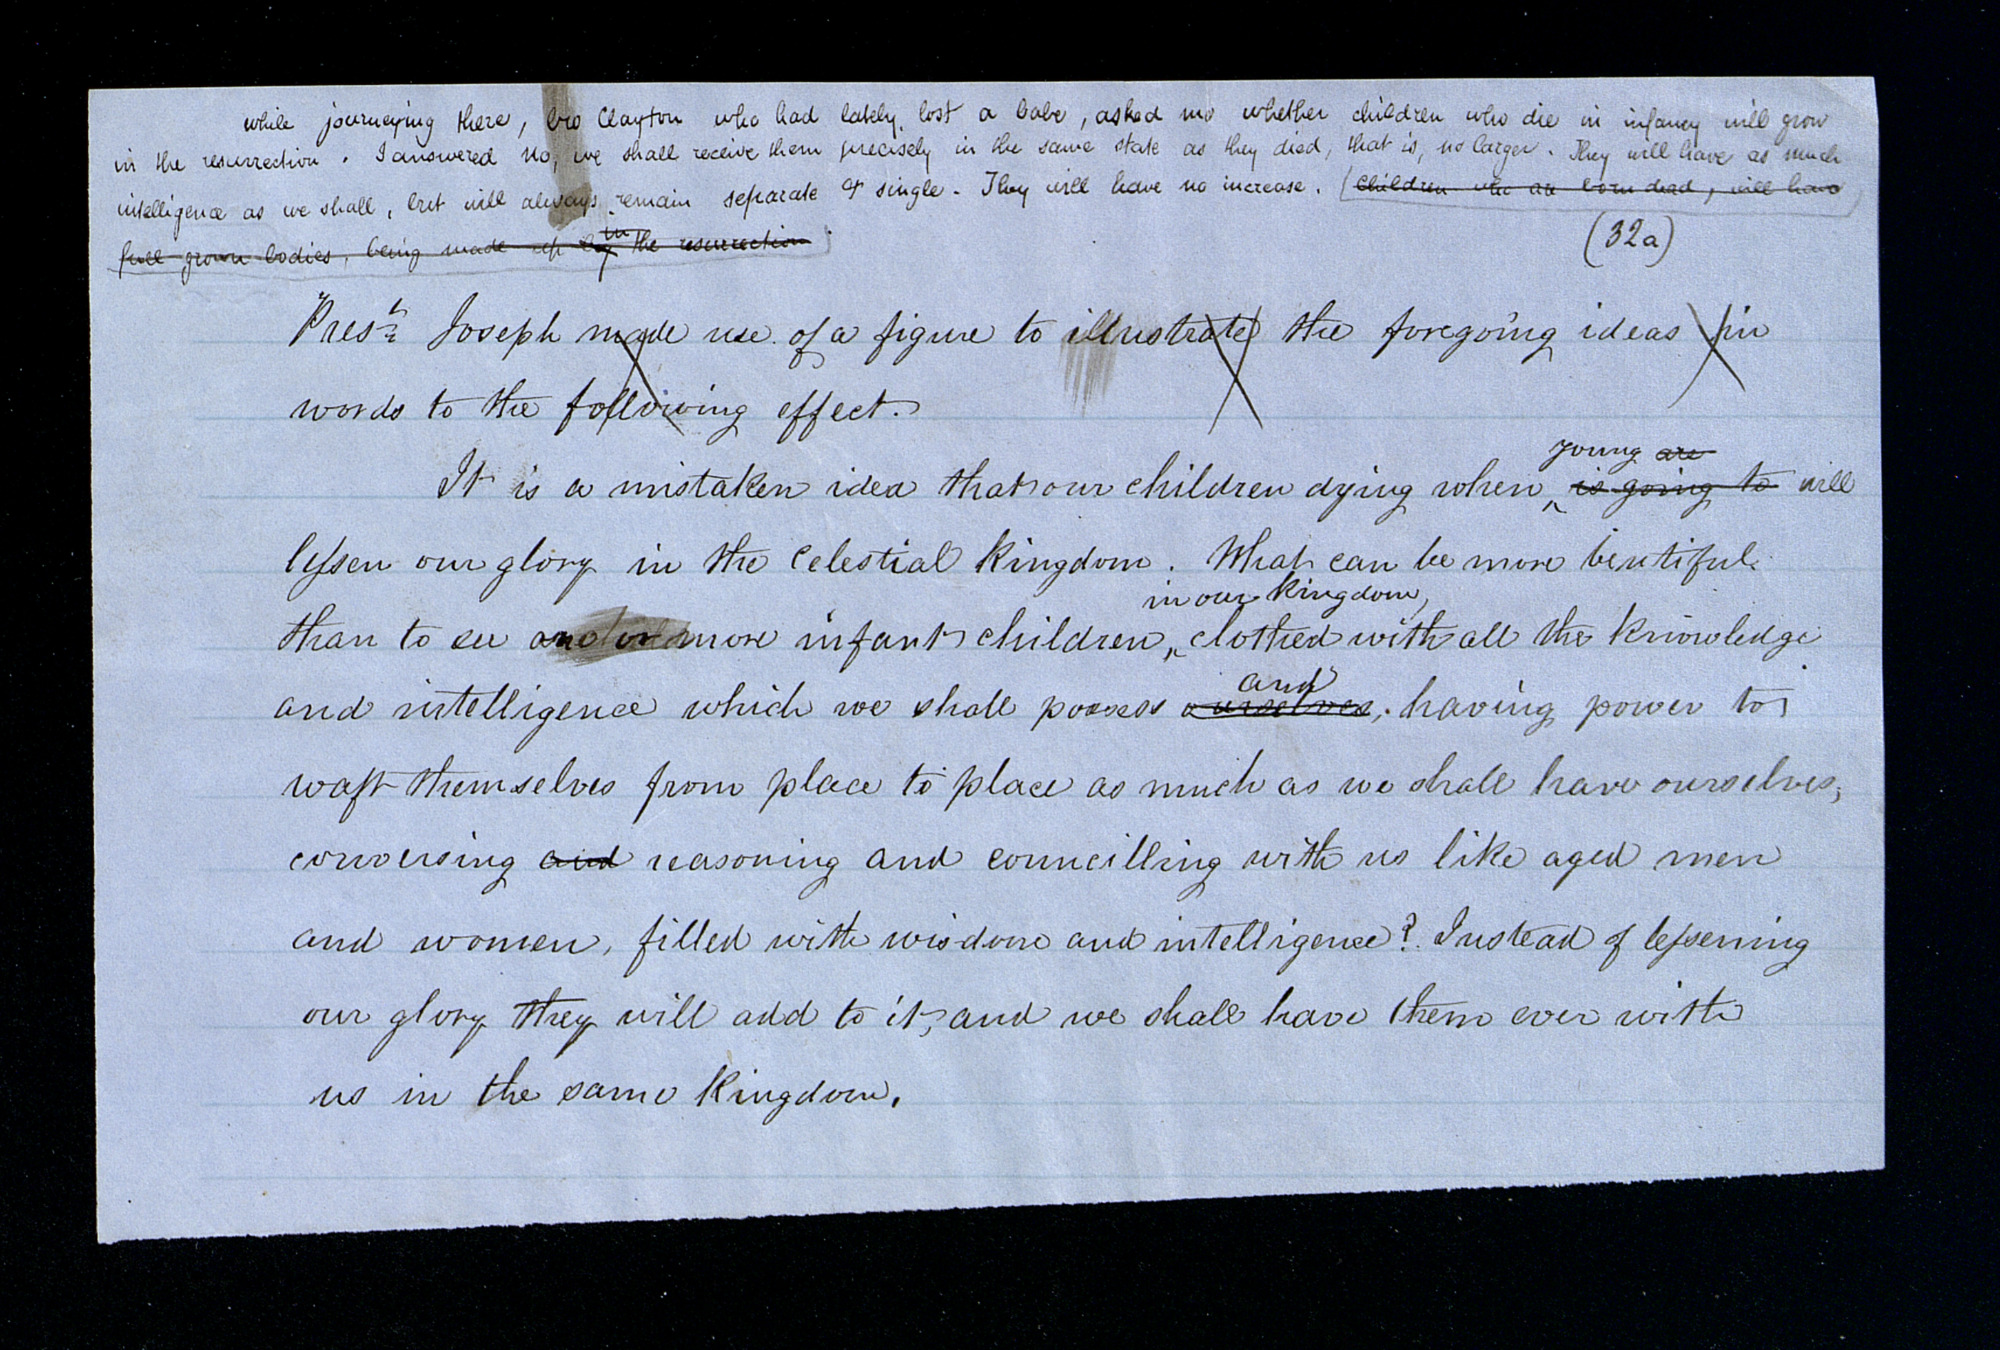 while journeying there, bro Clayton who had lately lost a babe, asked me whether children who die in infancy will grow
in the resurrection. I answered No, we shall receive them precisely in the same state as they died, that is, no larger. They will have as much
intelligence as we shall, but will always remain separate & single. They will have no increase. (Children who are born dead, will have
full grown bodies, being made up by in the resurrection)
(32a)
Prest. Joseph made use of a figure to illustrate the foregoing ideas in
words to the following effect.
young are
It is a mistaken idea that our children dying when is going to will
lessen our glory in the celestial kingdom. What can be more beutiful
in our kingdom,
than to see more infant children, clothed with all the knowledge
and
and intelligence which we shall possess ourselves, having power to
waft themselves from place to place as much as we shall have ourselves,
conversing and reasoning and councilling with us like aged men
and women, filled with wisdom and intelligence? Instead of lessening
our glory they will add to it, and we shall have them ever with
us in the same kingdom.